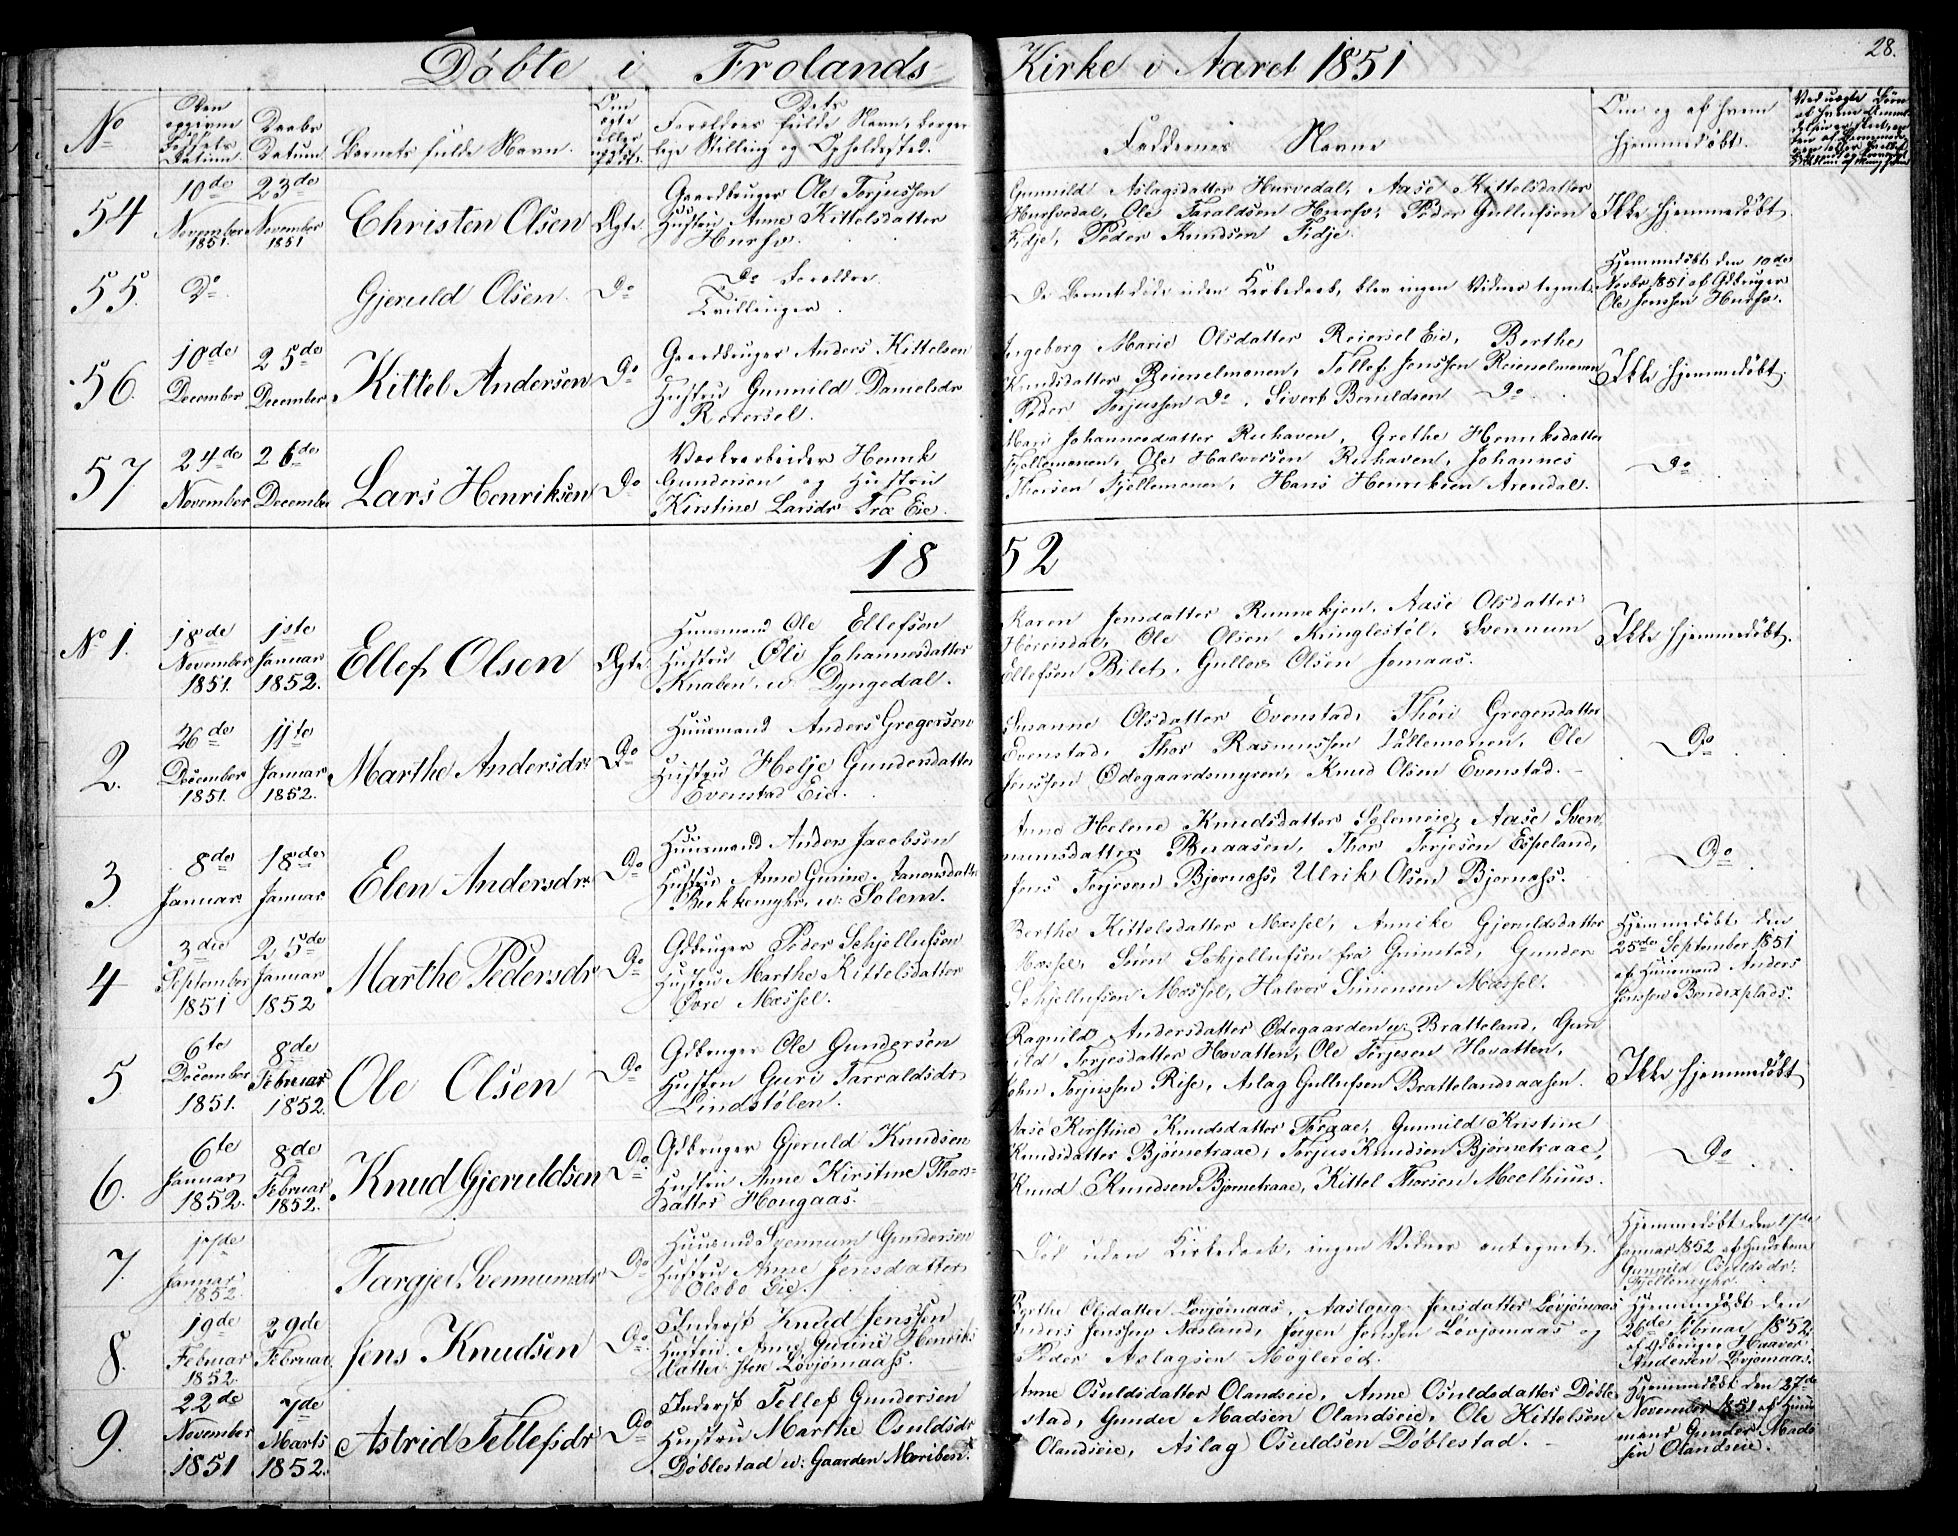 Døbte i Frolands Kirke i Aaret 1851
28.
No
Den opgivne Fødsels Datum.
Daabs Datum.
Barnets fulde Navn.
Om ægte eller uægte født.
Dets Forældres fulde Navn, borgerlige Stilling og Opholdssted.
Faddernes Navne
Om og af hvem hjemmedøbt.
54
10de November 1851.
23de November 1851
Christen Olsen
Ægte.
Gaardbruger Ole Torjussen
Hustru Anne Kittelsdatter
Hurfv.
Gunnild Aslagsdatter Hurvedal, Aase Kittelsdatter
Hurfvedal, Ole Taraldsen Hurfv, Peder Gullufsen
Fidje, Peder Knudsen Fidje.
Ikke hjemmedøbt.
55.
Do
Gjeruld Olsen.
Do
Do Forældre
Tvillinger.
Da Barnet døde uden Kirkedaab, blev ingen Vidner tegnet.
Hjemmedøbt den 10de
Novbr 1851 af Gdbruger
Ole Jenssen Hurfv.
56.
10de December
25de December
Kittel Andersen
Do
Gaardbruger Anders Kittelsen
Hustru Gunnild Danielsdr
Reiersel.
Ingeborg Marie Olsdatter Reiersel Eie, Berthe
Knudsdatter Reierselmonen, Tellef Jenssen Reierselmonen
Peder Torjussen Do, Sivert Beruldsen Do.
Ikke hjemmedøbt.
57
24de November
26de December
Lars Henriksen
Do
Værkarbeider Henrik
Gundersen og Hustru
Kirstine Larsdr Træ Eie.
Mari Johannesdatter Ruhaven, Grethe Henriksdatter
Fjellemonen, Ole Halvorsen Ruhaven, Johannes
Thorsen Fjellemonen, Hans Henriksen Arendal.
Do
1852
No 1.
18de November 1851.
1ste Januar 1852.
Ellef Olsen
Ægte
Huusmand Ole Ellefsen
Hustru Oli Johannesdatter
Knaben u: Dyngedal.
Karen Jensdatter Rennekjen, Aase Olsdatter
Heresdal, Ole Olsen Kringlestöl, Svennum
Ellefsen Bilet, Gullov Olsen Jomaas.
Ikke hjemmedøbt.
2.
26de December 1851.
11te Januar 1852.
Marthe Andersdr.
Do
Huusmand Anders Gregersen
Hustru Helje Gundersdatter
Evenstad Eie.
Susanne Olsdatter Evenstad, Thöri Gregersdatter
Evenstad, Thor Rasmussen Vallemonen, Ole
Jenssen Ødegaardsmyren, Knud Olsen Evenstad.
Do
3.
8de Januar.
18de Januar
Elen Andersdr.
Do
Huusmand Anders Jacobsen
Hustru Anne Gurine Aanonsdatter
Bekkemyhr u: Solem.
Anne Helene Knudsdatter Solemeie, Aase Sven-
numsdatter Buaasen, Thor Terjesen Espeland,
Jens Terjesen Bjornæhs, Ulrik Olsen Bjornæhs.
Do
4
3die September 1851
25de Januar 1852
Marthe Pedersdr
Do
Gdbruger Peder Schjellufsen
Hustru Marthe Kittelsdatter
Øvre Mæssel.
Berthe Kittelsdatter Mæssel, Annike Gjeruldsdatter
Mæssel, Søren Schjellufsen fra Grimstad, Gunder
Schjellufsen Mæssel, Halvor Simonsen Mæssel.
Hjemmedøbt den
25de September 1851
af Huusmand Anders
Jenssen Bendixplads.
5
6te December 1851.
8de Februar 1852.
Ole Olsen
Do
Gdbruger Ole Gundersen
Hustru Guri Tarraldsdr
Lindstølen.
Ragnild Andersdatter Ødegaarden u: Bratteland, Gun
ild Terjesdatter Hovatten, Ole Terjesen Hovatten,
John Torjussen Rise, Aslag Gullufsen Brattelandsaasen.
Ikke hjemmedøbt
6.
6te Januar 1852.
8de Februar 1852.
Knud Gjeruldsen
Do.
Gdbruger Gjeruld Knudsen
Hustru Anne Kirstine Thors-
datter Hougaas.
Aase Kirstine Knudsdatter Torgaae, Gunnild Kristine
Knudsdatter Bjørnetraae, Torjus Knudsen Bjørnetraae,
Knud Knudsen Bjørnetraae, Kittel Thorsen Moelhuus.
Do
7.
17de Januar 1852.
Targjer Svennumsdr
Do
Huusmd Svennum Gundersen
Hustru Anne Jensdatter
Olsbo Eie.
Død uden Kirkedaab, ingen Vidner antegnet.
Hjemmedøbt den 17de
Januar 1852 af Huuskone
Gunnild Osuldsdr.
Fjellemyhr.
8.
19de Februar 1852.
29de Februar
Jens Knudsen
Do
Inderst Knud Jenssen
Hustru Anne Gurine Henriks
datter Løvjomaahs.
Berthe Olsdatter Løvjomaas, Aaslaug Jensdatter Løvjomaas
Anders Jenssen Næsland, Jørgen Jenssen Løvjomaas og
Peder Aslagsen Møglerød.
Hjemmedøbt den
26de Februar 1852
af Gdbruger Haavor
Andersen Løvjomaas.
9.
22de November 1851
7de Marts 1852.
Astrid Tellefsdr
Do
Inderst Tellef Gundersen
Hustru Marthe Osuldsdr
Døblestad u: Gaarden Moriben.
Anne Osuldsdatter Olandseie, Anne Osuldsdatter Døble-
stad, Gunder Madsen Olandseie, Ole Kittelsen
Olandseie, Aslag Osuldsen Døblestad.
Hjemmedøbt den 27de
November 1851 af Huus
mand Gunder Mad-
sen Olandseie.